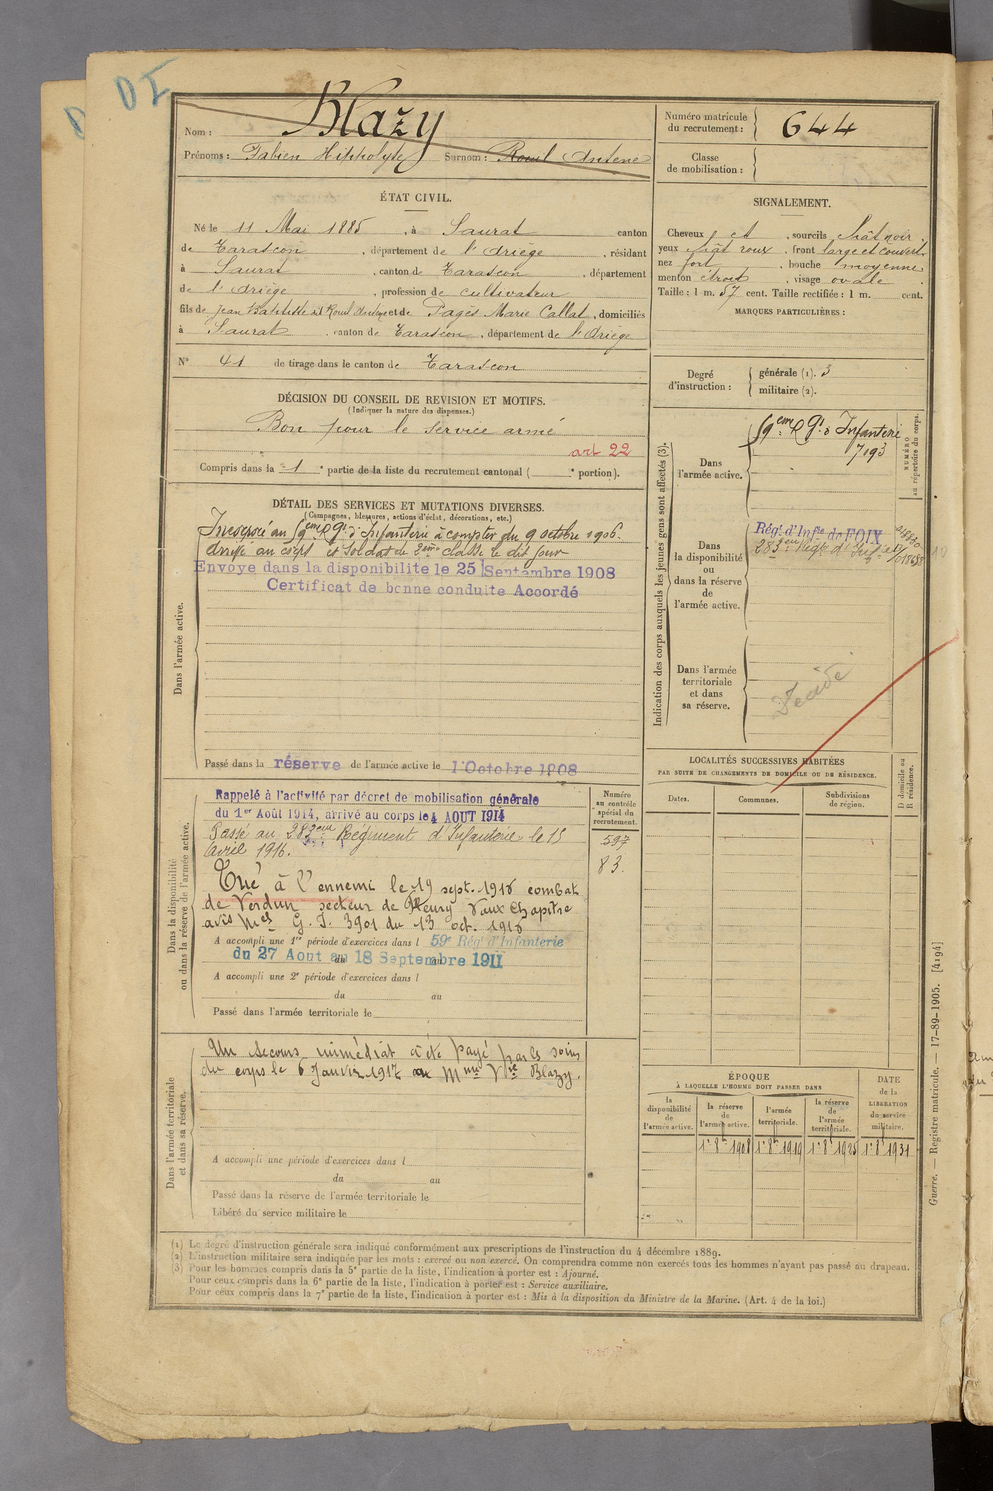 D I
Nom : Blazy
Prénoms : Fabien Hippolyte Surnom : Roul Antene
Numéro matricule du recrutement : 644
Classe de mobilisation :
ÉTAT CIVIL.
Né le 11 Mai 1885, à Saurat canton
de Tarascon, département de l'Ariège, résidant
à Saurat, canton de Tarascon, département
de l'Ariège, profession de cultivateur
fils de Jean Baptiste et de Pagès Marie Callat, domiciliés
à Saurat, canton de Tarascon, département de l'Ariège
N° 41 de tirage dans le canton de Tarascon
SIGNALEMENT.
Cheveux ct, sourcils chât noir
yeux chât roux, front large et couvert
nez fort, bouche moyenne
menton étroit, visage ovale
Taille : 1 m. 57 cent. Taille rectifiée : 1 m. cent.
MARQUES PARTICULIÈRES :
DÉCISION DU CONSEIL DE REVISION ET MOTIFS.
(Indiquer la nature des dispenses.)
Bon pour le service armé
art 22
Compris dans la 1e partie de la liste du recrutement cantonal ( e portion).
Degré d'instruction : générale (1). 3
militaire (2).
DÉTAIL DES SERVICES ET MUTATIONS DIVERSES.
(Campagnes, blessures, actions d'éclat, décorations, etc.)
Dans l'armée active.
Incorporé au 59eme Rgt d'Infanterie à compter du 9 octobre 1906.
Arrivé au corps et soldat de 2eme classe le dit jour
Envoyé dans la disponibilité le 25 Septembre 1908
Certificat de bonne conduite Accordé
Passé dans la réserve de l'armée active le 1 Octobre 1908
Indication des corps auxquels les jeunes gens sont affectés (3).
NUMÉRO au répertoire du corps.
Dans l'armée active.
59eme Rgt d'Infanterie
7193
Dans la disponibilité ou dans la réserve de l'armée active.
Régt d'Infie de FOIX
283eme Régt d'Inf
Dans l'armée territoriale et dans sa réserve.
Décédé
LOCALITÉS SUCCESSIVES HABITÉES
PAR SUITE DE CHANGEMENTS DE DOMICILE OU DE RÉSIDENCE.
Dates. Communes. Subdivisions de région. D domicile ou R résidence.
Dans la disponibilité ou dans la réserve de l'armée active.
Numéro au contrôle spécial du recrutement.
597
83.
Rappelé à l'activité par décret de mobilisation générale
du 1er Août 1914, arrivé au corps le 4 AOUT 1914
Passé au 283eme Régiment d'Infanterie le 15
avril 1916.
Tué à l'ennemi le 19 sept. 1916 combat
de Verdun secteur de Fleury Vaux Chapitre
avis Mel G. F. 3901 du 13 oct. 1916
A accompli une 1re période d'exercices dans l 59e Régt d'Infanterie
du 27 Aout au 18 Septembre 1911
A accompli une 2e période d'exercices dans l
du au
Passé dans l'armée territoriale le
Dans l'armée territoriale et dans sa réserve.
Un secours immédiat a été payé par les soins
du corps le 6 Janvier 1917 au Mme Vve Blazy.
A accompli une période d'exercices dans l
du au
Passé dans la réserve de l'armée territoriale le
Libéré du service militaire le
ÉPOQUE
À LAQUELLE L'HOMME DOIT PASSER DANS
la disponibilité de l'armée active. la réserve de l'armée active. l'armée territoriale. la réserve de l'armée territoriale.
DATE de la LIBÉRATION du service militaire.
1er 8bre 1908 1er 8bre 1919 1er 8bre 1925 1er 8bre 1931
(1) Le degré d'instruction générale sera indiqué conformément aux prescriptions de l'instruction du 4 décembre 1889.
(2) L'instruction militaire sera indiquée par les mots : exercé ou non exercé. On comprendra comme non exercés tous les hommes n'ayant pas passé au drapeau.
(3) Pour les hommes compris dans la 5e partie de la liste, l'indication à porter est : Ajourné.
Pour ceux compris dans la 6e partie de la liste, l'indication à porter est : Service auxiliaire.
Pour ceux compris dans la 7e partie de la liste, l'indication à porter est : Mis à la disposition du Ministre de la Marine. (Art. 4 de la loi.)
Guerre. — Registre matricule. — 17-89-1905. [4194]